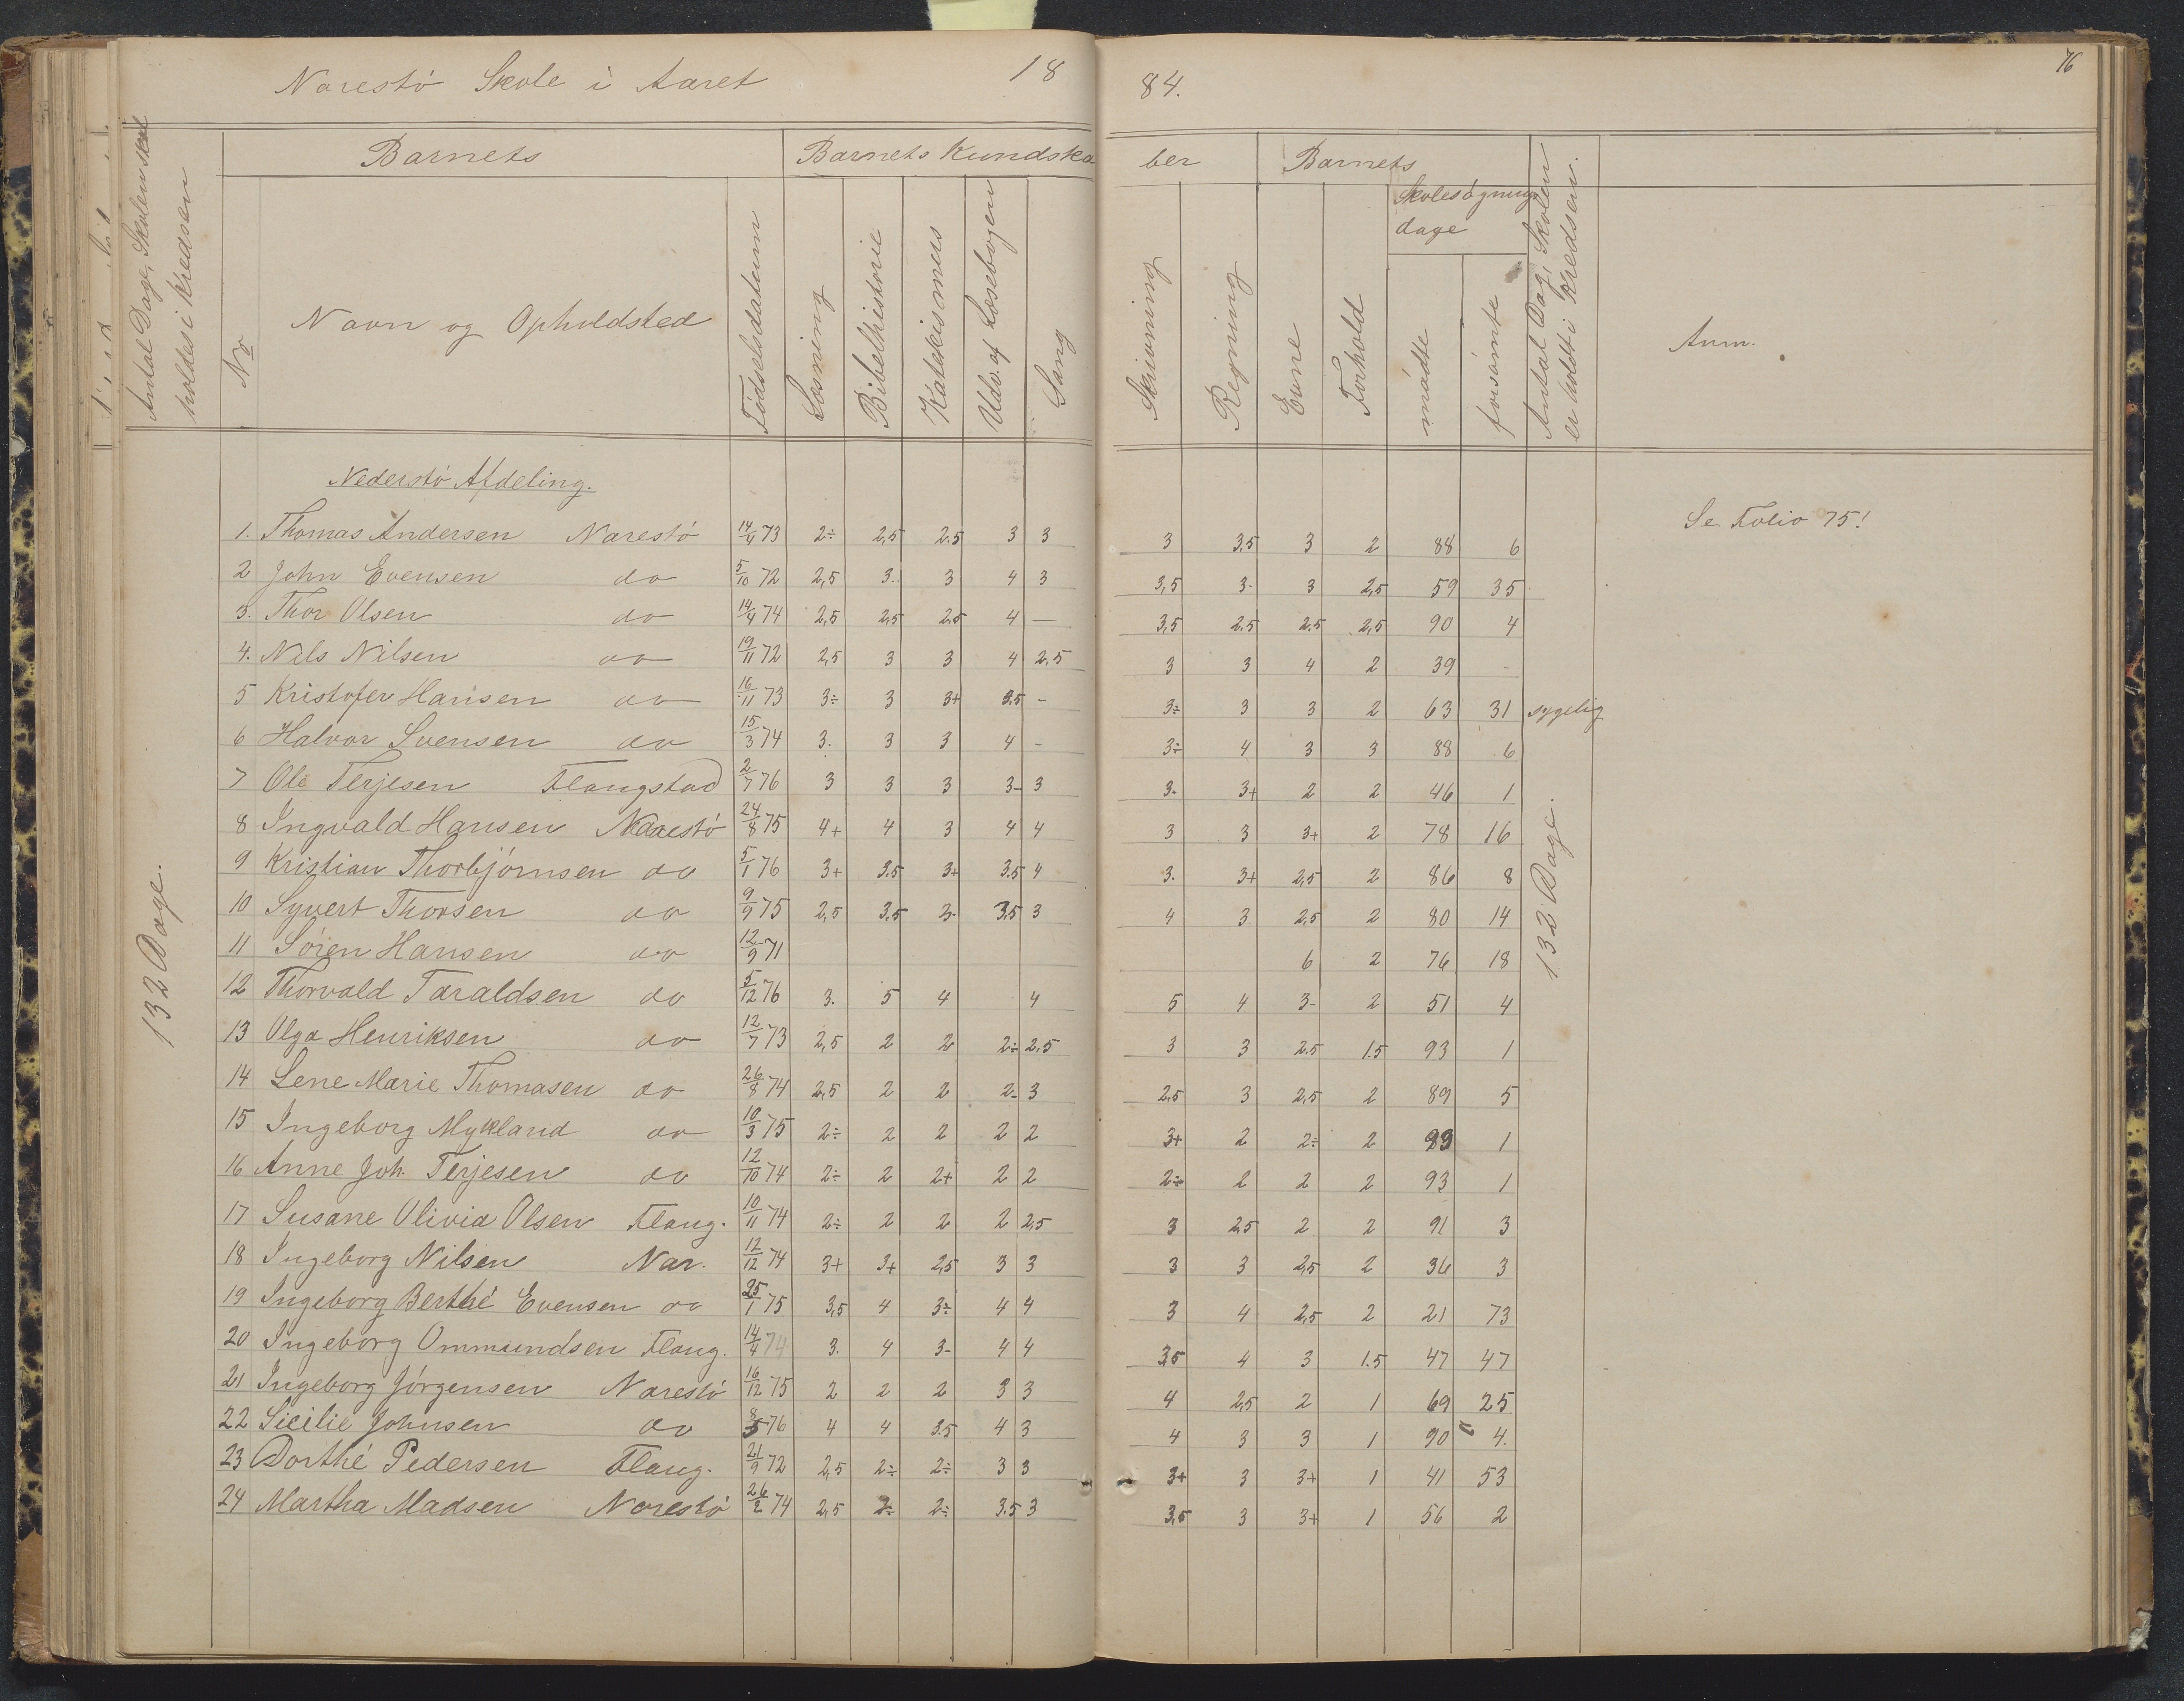 Narestö Skole i Aaret 1884.
76
Antal Dage, Skolen skal holdes i Kredsen
Barnets
Barnets Kundskaber
Barnets
Nr
Navn og Opholdsted
Fødselsdatum
Læsning
Bibelhistorie
Katekismus
Udv. af Læsebogen
Sang
Skrivning
Regning
Evne
Forhold
Skolesøgning dage
mødte
forsømte
Antal Dage, Skolen er holdt i Kredsen.
Anm.
Nederstö Afdeling.
Se Folio 75!
1. Thomas Andersen Narestö 14/4 73 2÷ 2,5 2.5 3 3 3 3.5 3 2 88 6
2 John Evensen do 5/10 72 2,5 3. 3 4 3 3,5 3- 3 2,5 59 35
3. Thor Olsen do 14/4 74 2,5 2,5 2.5 4 — 3,5 2.5 2.5 2,5 90 4
4. Nils Nilsen do 19/11 72 2,5 3 3 4 2,5 3 3 4 2 39 -
5 Kristofer Hansen do 16/11 73 3÷ 3 3+ 3.5 - 3÷ 3 3 2 63 31 sygelig
6 Halvor Svensen do 15/3 74 3. 3 3 4 - 3÷ 4 3 3 88 6
7 Ole Terjesen Flangstad 2/7 76 3 3 3 3- 3 3- 3+ 2 2 46 1
8 Ingvald Hansen Narestö 24/8 75 4+ 4 3 4 4 3 3 3+ 2 78 16
9 Kristian Thorbjörnsen do 5/1 76 3+ 3.5 3+ 3.5 4 3. 3+ 2,5 2 86 8
10 Syvert Thorsen do 9/9 75 2,5 3,5 3- 3,5 3 4 3 2,5 2 80 14
11 Sören Hansen do 12/9 71 6 2 76 18
12 Thorvald Taraldsen do 5/12 76 3. 5 4 4 5 4 3- 2 51 4
13 Olga Henriksen do 12/7 73 2,5 2 2 2÷ 2,5 3 3 2.5 1.5 93 1
14 Lene Marie Thomasen do 26/8 74 2,5 2 2 2- 3 2,5 3 2,5 2 89 5
15 Ingeborg Mykland do 10/3 75 2÷ 2 2 2 2 3+ 2 2÷ 2 93 1
16 Anne Joh. Terjesen do 12/10 74 2÷ 2 2+ 2 2 2÷ 2 2 2 93 1
17 Susane Olivia Olsen Flang. 10/11 74 2÷ 2 2 2 2,5 3 2,5 2 2 91 3
18 Ingeborg Nilsen Nar. 12/12 74 3+ 3+ 2,5 3 3 3 3 2,5 2 36 3
19 Ingeborg Berthé Evensen do 25/1 75 3,5 4 3÷ 4 4 3 4 2,5 2 21 73
20 Ingeborg Ommundsen Flang. 14/4 74 3. 4 3- 4 4 3,5 4 3 1.5 47 47
21 Ingeborg Jörgensen Narestö 16/12 75 2 2 2 3 3 4 2,5 2 1 69 25
22 Sicilie Johnsen do 8/5 76 4 4 3.5 4 3 4 3 3 1 90 4.
23 Dorthé Pedersen Flang. 21/9 72 2,5 2÷ 2÷ 3 3 3+ 3 3+ 1 41 53
24 Martha Madsen Narestö 26/2 74 2,5 2÷ 2÷ 3.5 3 3,5 3 3+ 1 56 2
132 Dage.
132 Dage.